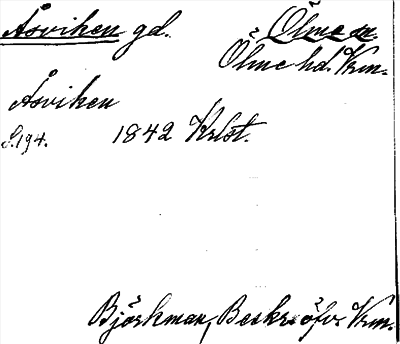 Åsviken gd. Ölme sn
Ölme hd. Vrm.
Åsviken
S.194. 1842 Krlst.
Björkman, Beskr. öfv. Vrm.